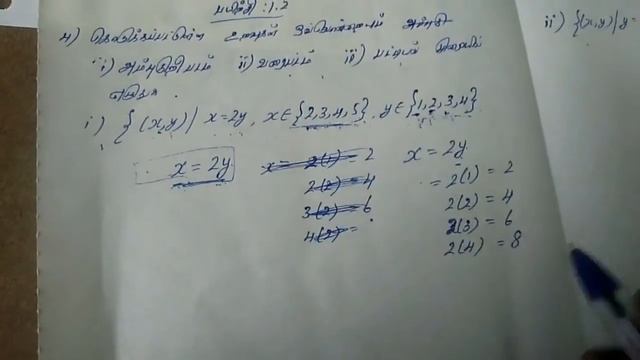 பயிற்சி : 1.2
4) கொடுக்கப்பட்டுள்ள உறவுகள் ஒவ்வொன்றையும் அம்புக்குறி
i) அம்புக்குறி படம் ii) வரைபடம் iii) பட்டியல் முறையில்
எழுதுக.
i) { (x,y) | x=2y, x∈{2,3,4,5}, y∈{1,2,3,4}
x = 2y
x = 2(1) = 2
2(2) = 4
3(2) = 6
4(2) =
x = 2y
= 2(1) = 2
2(2) = 4
2(3) = 6
2(4) = 8
ii) {(x,y)| y=